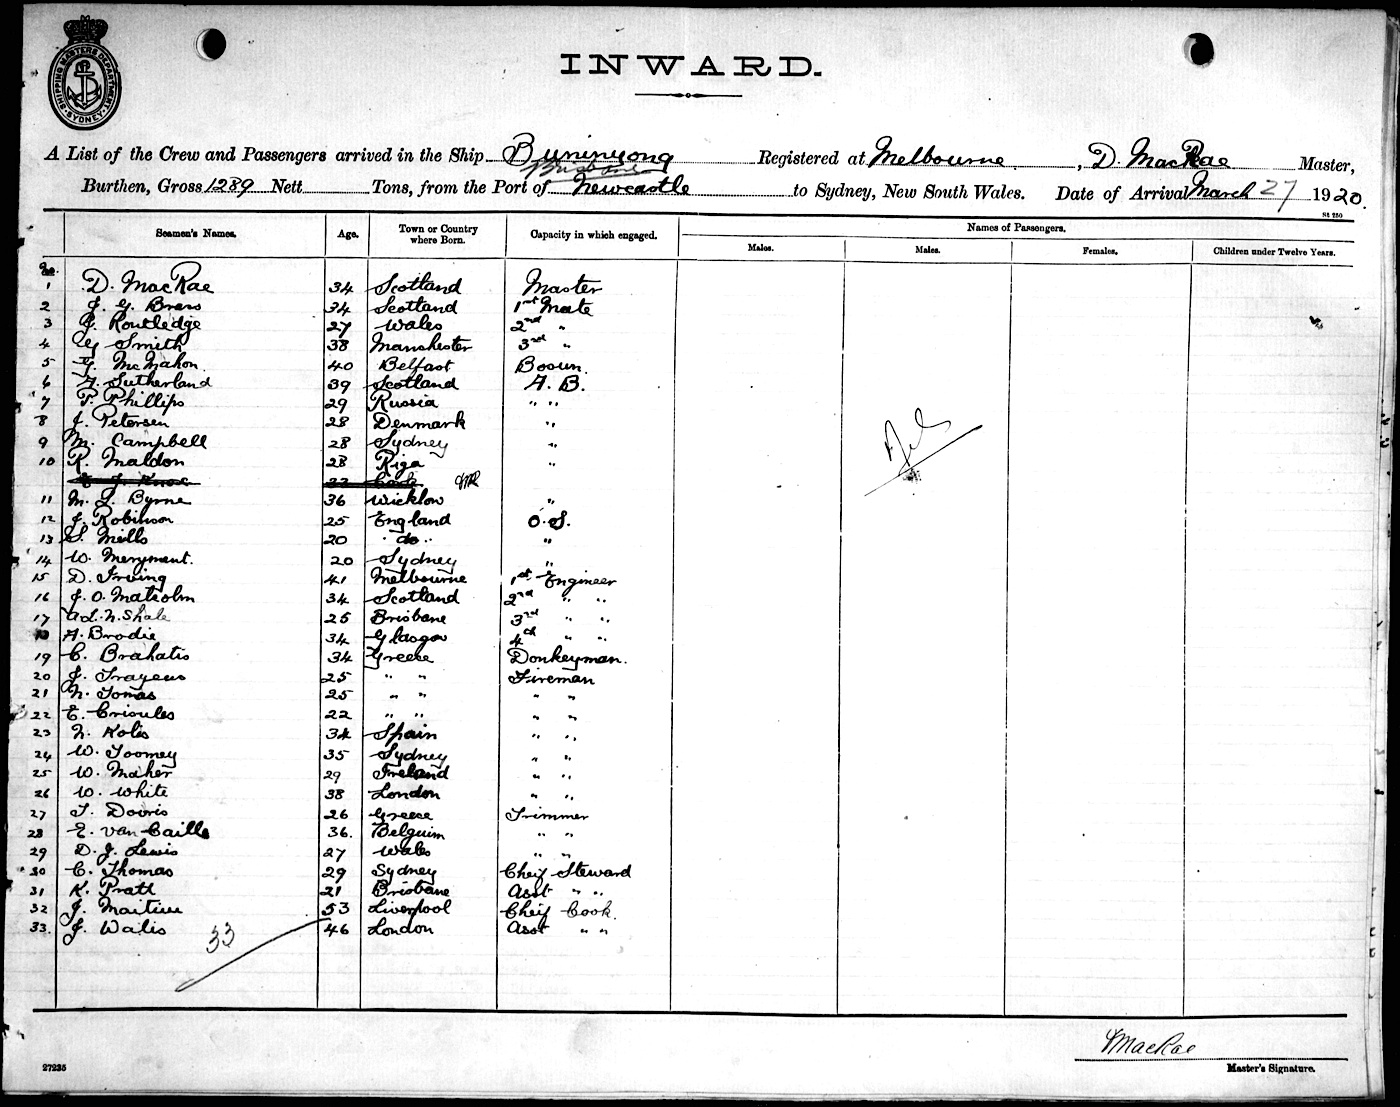 SHIPPING MASTERS DEPARTMENT SYDNEY
INWARD.
A List of the Crew and Passengers arrived in the Ship Buninyong Registered at Melbourne, D. MacRae Master,
Brisbane
Burthen, Gross 1289 Nett Tons, from the Port of Newcastle to Sydney, New South Wales. Date of Arrival March 27 1920.
St 250
Seamen's Names. Age. Town or Country where Born. Capacity in which engaged. Names of Passengers.
Males. Males. Females. Children under Twelve Years.
No.
1 D. MacRae 34 Scotland Master
2 J. G. Brers 34 Scotland 1st Mate
3 G. Routledge 27 Wales 2nd "
4 G. Smith 38 Manchester 3rd "
5 McMahon. 40 Belfast Bosun.
6 Sutherland 39 Scotland A. B.
7 P. Phillips 29 Russia " "
8 J. Petersen 28 Denmark "
9 M. Campbell 28 Sydney "
10 R. Maldon 28 Riga "
J. Knox 33 Cork
11 M. L. Byrne 36 Wicklow "
12 J. Robinson 25 England O. S.
13 S. Mills 20 " do " "
14 W. Meryment. 20 Sydney "
15 D. Irving 41 Melbourne 1st Engineer
16 J. O. Malcolm 34 Scotland 2nd " "
17 A. L. N. Shale 25 Brisbane 3rd " "
18 A. Brodie 34 Glasgow 4th " "
19 C. Brahatis 34 Greece Donkeyman.
20 J. Trayens 25 " " Fireman
21 N. Tomas 25 " " " "
22 E. Crioules 22 " " " "
23 N. Kolis 34 Spain " "
24 W. Toomey 35 Sydney " "
25 W. Maher 29 Ireland " "
26 W. White 38 London " "
27 T. Dovris 26 Greece Trimmer
28 E. Van Caille 36. Belguim " "
29 D. J. Lewis 27 Wales " "
30 C. Thomas 29 Sydney Cheif Steward
31 K. Pratt 21 Brisbane Asst " "
32 J. Martin 53 Liverpool Cheif Cook.
33. J. Walis 46 London Asst " "
33
MacRae
27235 Master's Signature.